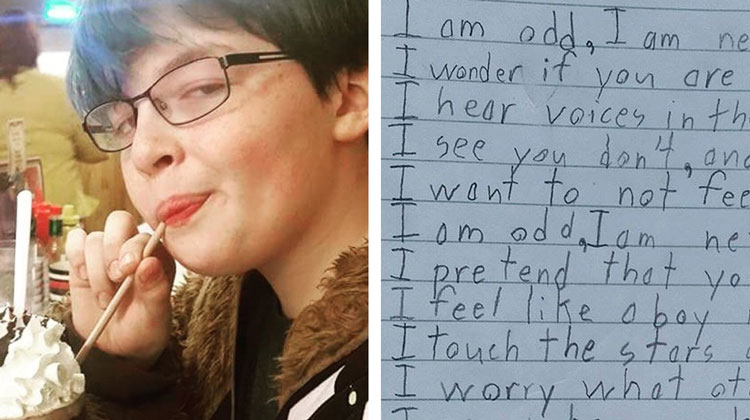 I am odd, I am ne
I wonder if you are
I hear voices in th
I see you don't, and
I want to not fee
I am odd, I am ne
I pretend that yo
I feel like a boy
I touch the stars
I worry what ot
I